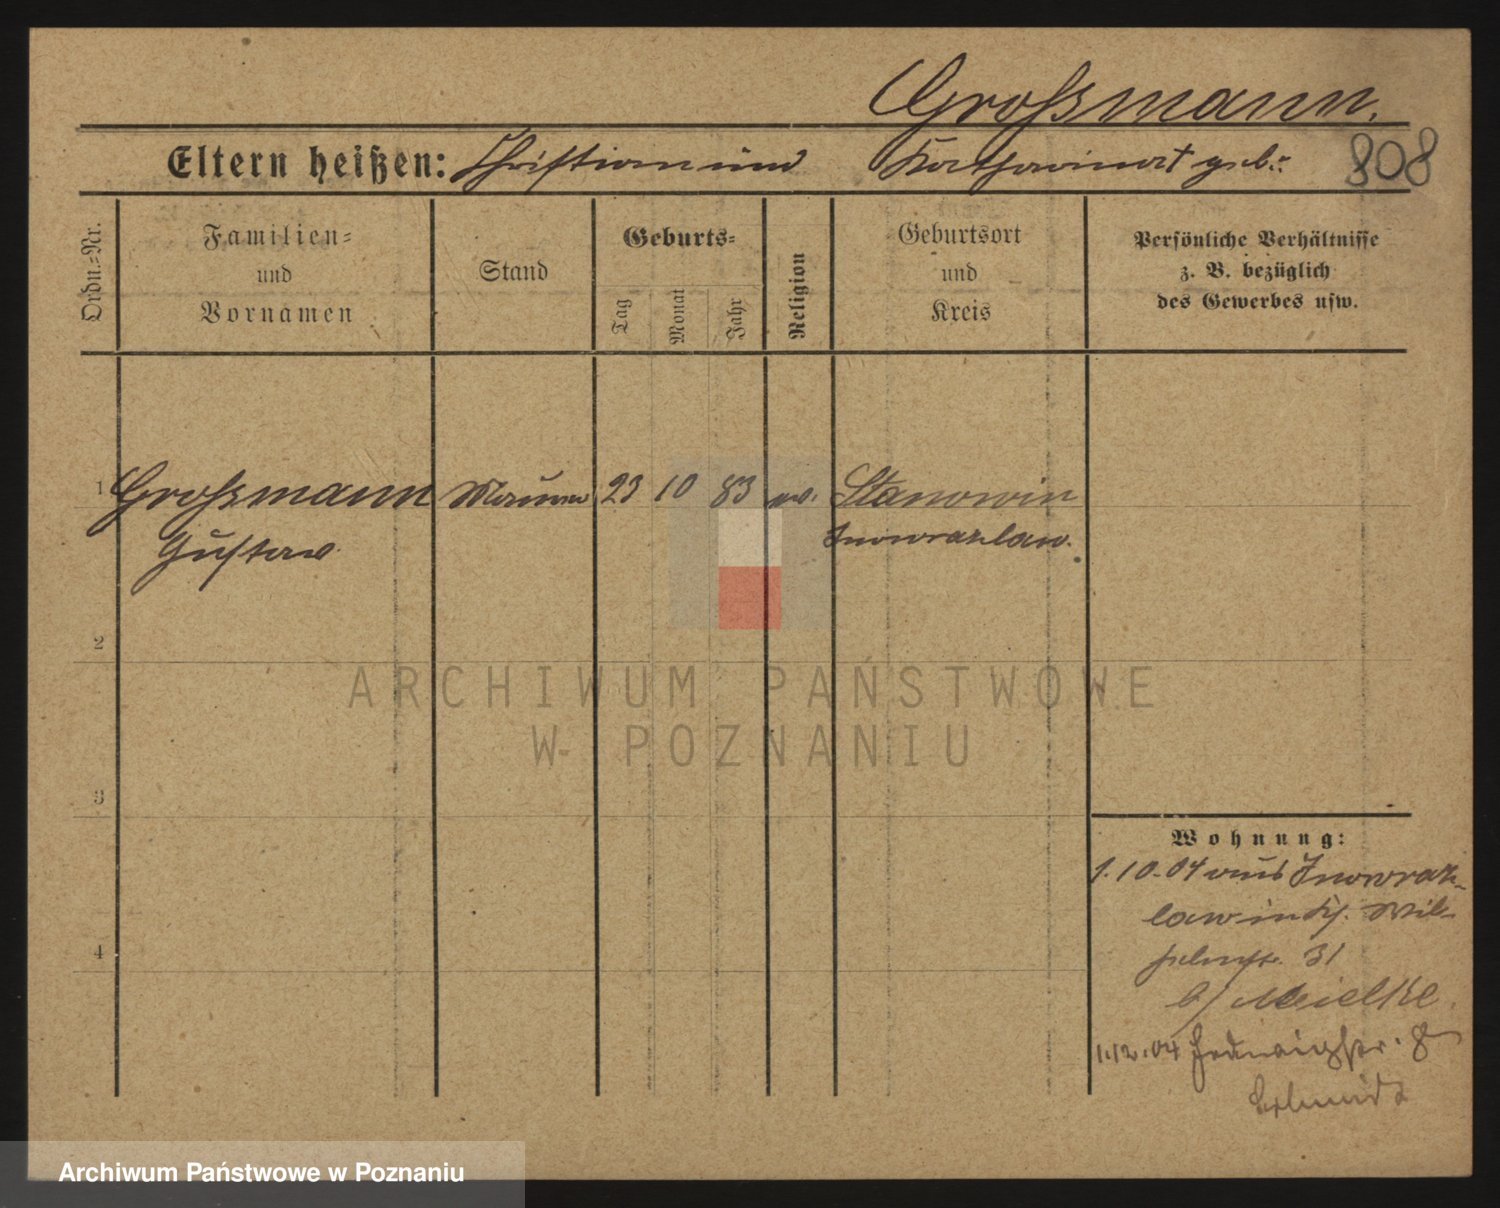 Großmann.
Eltern heißen: Christian und Katharina geb.:
808
Ordn.=Nr.
Familien=
und
Vornamen
Stand
Geburts=
Tag
Monat
Jahr
Religion
Geburtsort
und
Kreis
Persönliche Verhältnisse
z. B. bezüglich
des Gewerbes usw.
1 Großmann Maurer 23 10 83 ev. Stanowin
Gustav Inowrazlaw.
2
3
4
ARCHIWUM PAŃSTWOWE
W POZNANIU
Wohnung:
1.10.04 aus Inowraz-
law in Wil-
helmstr. 31
b/ Mielke.
1.12.04 Hedwigstr. 8
Schmidt
Archiwum Państwowe w Poznaniu